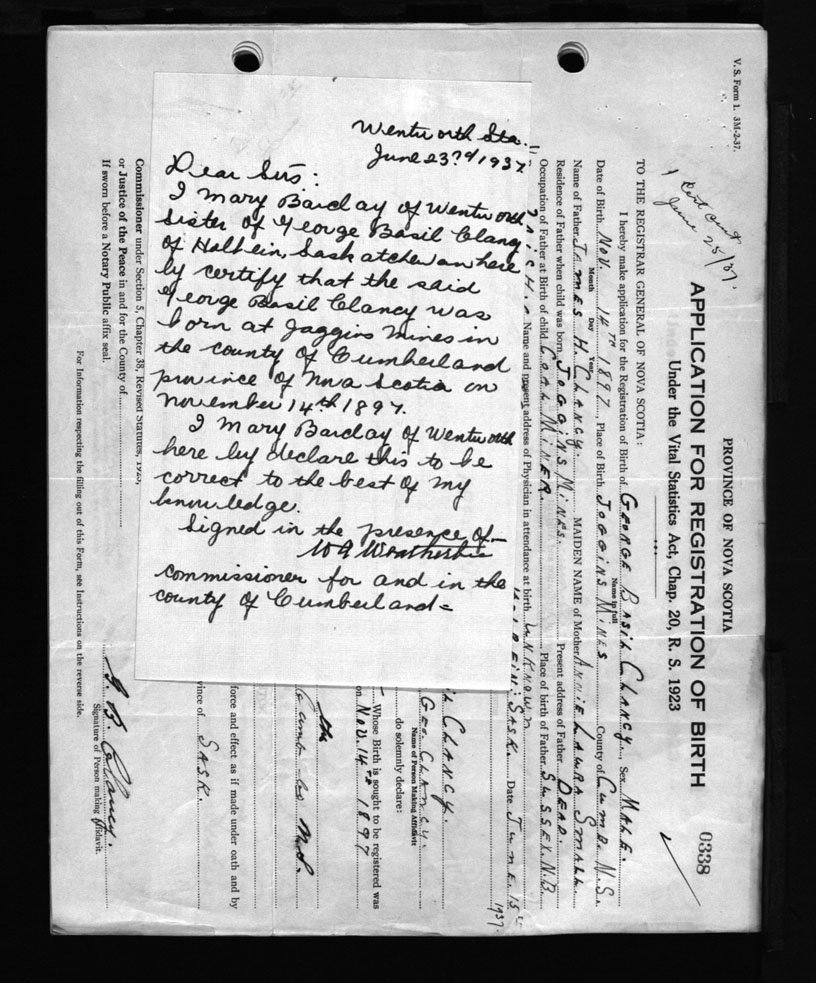 Wentworth Sta.
June 23rd/1937
Dear Sirs:
I Mary Barclay of Wentworth
Sister of George Basil Clancy
of Holbein, Saskatchewan here
by certify that the said
George Basil Clancy was
born at Joggins Mines in
the county of Cumberland
province of Nova Scotia on
November 14th 1897.
I Mary Barclay of Wentworth
here by declare this to be
correct to the best of my
knowledge.
Signed in the presence of—
commissioner for and in the
county of Cumberland=
V. S. Form 1. 3M-2-37.
June 25/37.
PROVINCE OF NOVA SCOTIA
0338
APPLICATION FOR REGISTRATION OF BIRTH
Under the Vital Statistics Act, Chap. 20, R. S. 1923
TO THE REGISTRAR GENERAL OF NOVA SCOTIA:
I hereby make application for the Registration of Birth of GEORGE BASIL CLANCY., Sex MALE.
Name in full
Date of Birth NOV. 14TH 1897, Place of Birth JOGGINS MINES County of CUMB. N.S.
Month Day Year
Name of Father JAMES H. CLANCY. MAIDEN NAME of Mother ANNIE LAURA SMALL.
Residence of Father when child was born JOGGINS MINES. Present address of Father DEAD.
Occupation of Father at Birth of child COAL MINER. Place of birth of Father SUSSEX. N.B.
Name and present address of Physician in attendance at birth UNKNOWN
HOLBEIN. SASK. Date JUNE. 15 1937.
CLANCY.
GEO. CLANCY.
Name of Person Making Affidavit
do solemnly declare:
Whose Birth is sought to be registered was
on NOV. 14TH 1897
force and effect as if made under oath and by
vince of SASK.
Commissioner under Section 5, Chapter 38, Revised Statutes,
or Justice of the Peace in and for the County of
If sworn before a Notary Public affix seal.
G. B. Clancy.
Signature of Person making Affidavit.
For Information respecting the filling out of this Form, see Instructions on the reverse side.